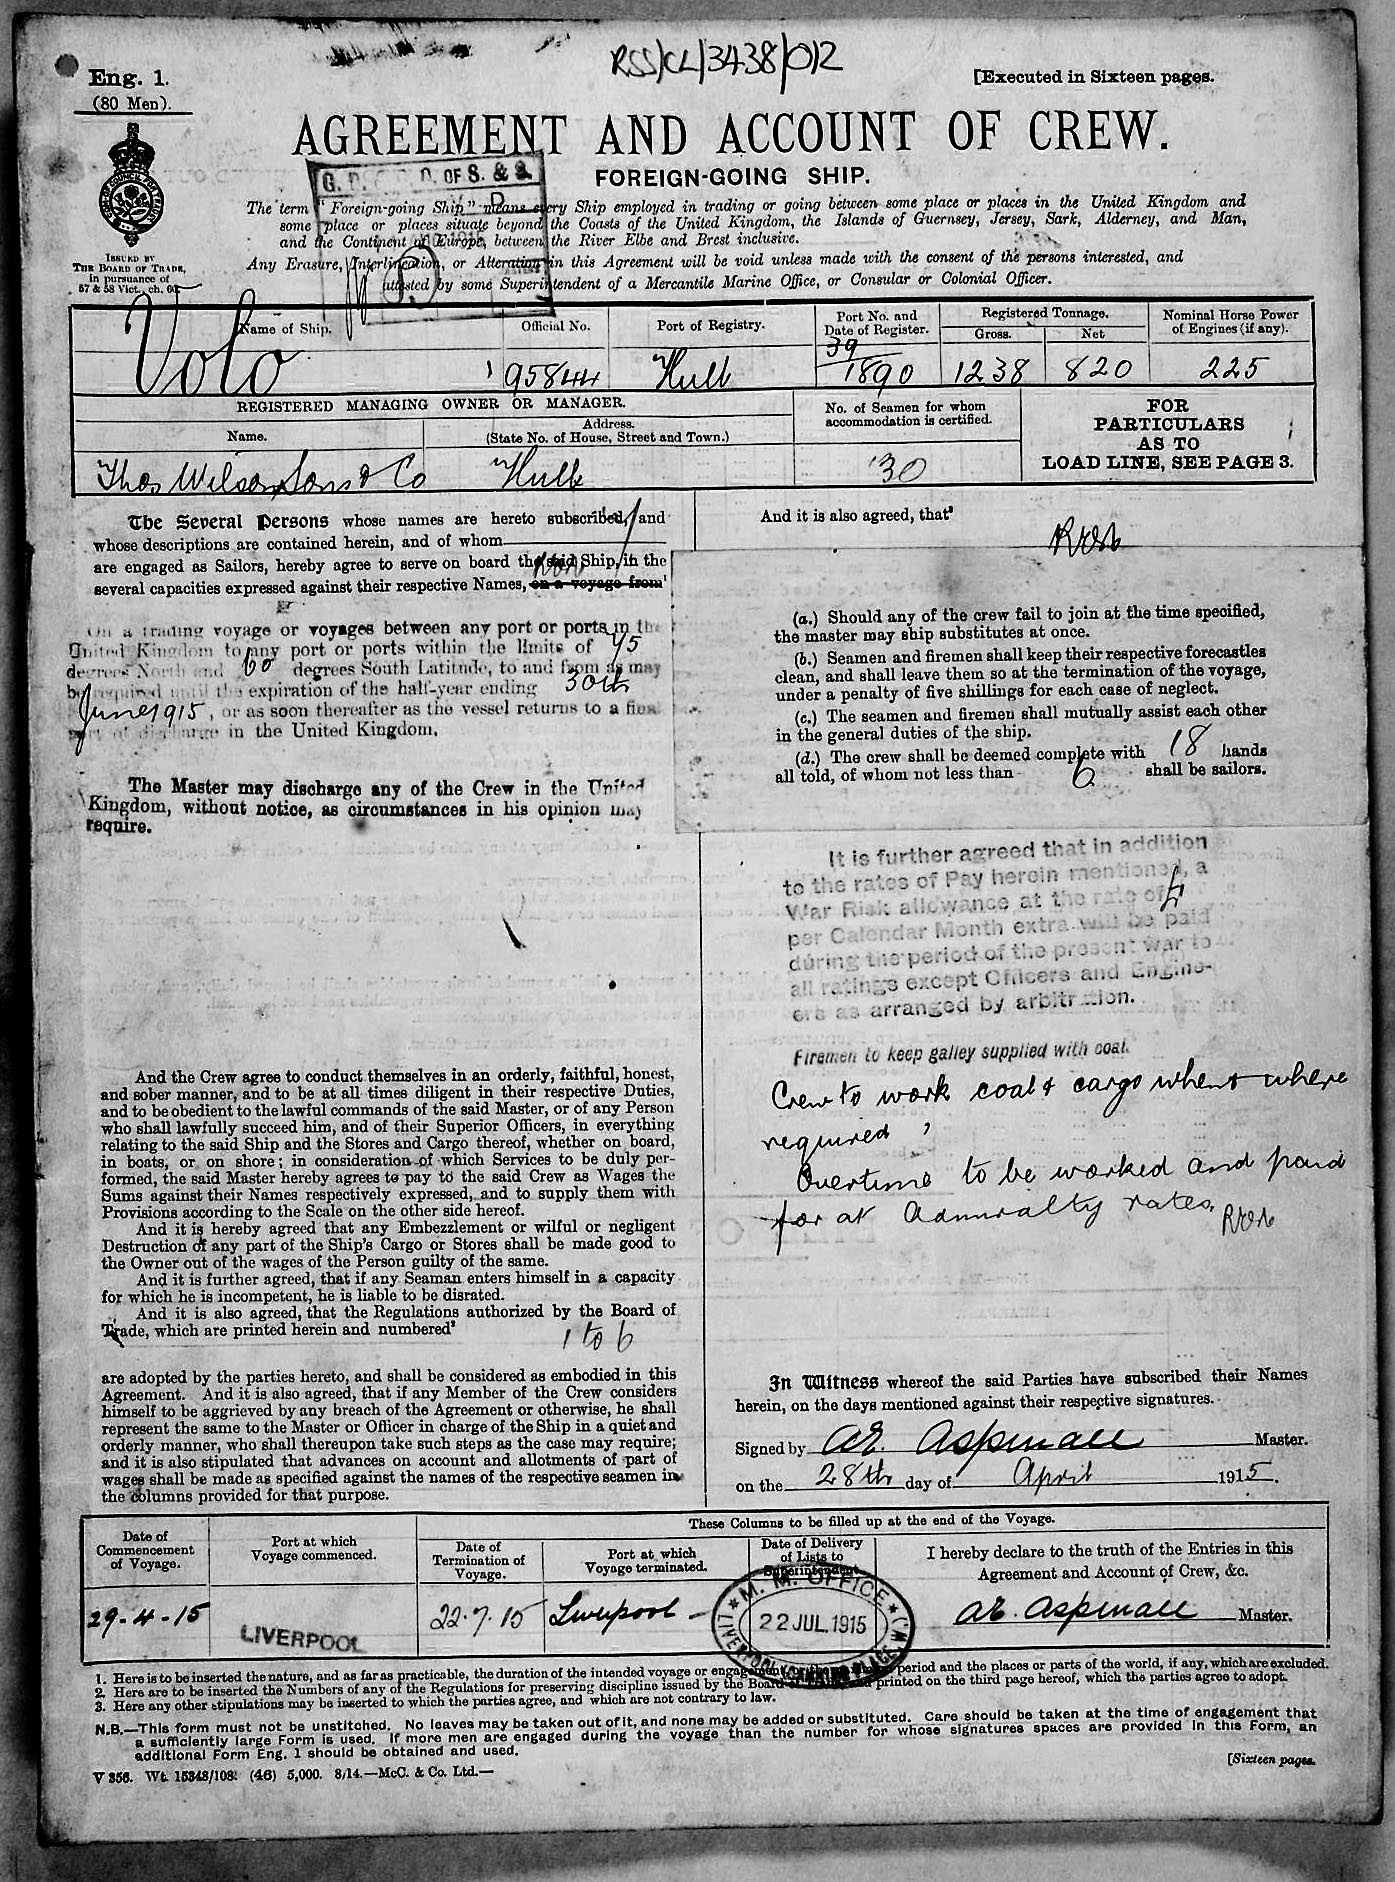 RSS/CL/3438/012
Eng. 1.
(80 Men).
[Executed in Sixteen pages.
AGREEMENT AND ACCOUNT OF CREW.
FOREIGN-GOING SHIP.
OF S. & S.
The term "Foreign-going Ship" means every Ship employed in trading or going between some place or places in the United Kingdom and
some place or places situate beyond the Coasts of the United Kingdom, the Islands of Guernsey, Jersey, Sark, Alderney, and Man,
and the Continent of Europe, between the River Elbe and Brest inclusive.
Any Erasure, Interlineation, or Alteration in this Agreement will be void unless made with the consent of the persons interested, and
attested by some Superintendent of a Mercantile Marine Office, or Consular or Colonial Officer.
ISSUED BY
THE BOARD OF TRADE,
in pursuance of
57 & 58 Vict., ch. 60.
Name of Ship.
Official No.
Port of Registry.
Port No. and
Date of Register.
Registered Tonnage.
Gross.
Net
Nominal Horse Power
of Engines (if any).
Volo
95844
Hull
39
1890
1238
820
225
REGISTERED MANAGING OWNER OR MANAGER.
Name.
Address.
(State No. of House, Street and Town.)
No. of Seamen for whom
accommodation is certified.
FOR
PARTICULARS
AS TO
LOAD LINE, SEE PAGE 3.
Thos Wilson Sons & Co
Hull
30
The Several Persons whose names are hereto subscribed, and
whose descriptions are contained herein, and of whom
are engaged as Sailors, hereby agree to serve on board the said Ship, in the
several capacities expressed against their respective Names, on a voyage from¹
On a trading voyage or voyages between any port or ports in the
United Kingdom to any port or ports within the limits of 75
degrees North and 60 degrees South Latitude, to and from as may
be required until the expiration of the half-year ending 30th
June 1915, or as soon thereafter as the vessel returns to a final
port of discharge in the United Kingdom.
The Master may discharge any of the Crew in the United
Kingdom, without notice, as circumstances in his opinion may
require.
And the Crew agree to conduct themselves in an orderly, faithful, honest,
and sober manner, and to be at all times diligent in their respective Duties,
and to be obedient to the lawful commands of the said Master, or of any Person
who shall lawfully succeed him, and of their Superior Officers, in everything
relating to the said Ship and the Stores and Cargo thereof, whether on board,
in boats, or on shore; in consideration of which Services to be duly per-
formed, the said Master hereby agrees to pay to the said Crew as Wages the
Sums against their Names respectively expressed, and to supply them with
Provisions according to the Scale on the other side hereof.
And it is hereby agreed that any Embezzlement or wilful or negligent
Destruction of any part of the Ship's Cargo or Stores shall be made good to
the Owner out of the wages of the Person guilty of the same.
And it is further agreed, that if any Seaman enters himself in a capacity
for which he is incompetent, he is liable to be disrated.
And it is also agreed, that the Regulations authorized by the Board of
Trade, which are printed herein and numbered²
1 to 6
are adopted by the parties hereto, and shall be considered as embodied in this
Agreement. And it is also agreed, that if any Member of the Crew considers
himself to be aggrieved by any breach of the Agreement or otherwise, he shall
represent the same to the Master or Officer in charge of the Ship in a quiet and
orderly manner, who shall thereupon take such steps as the case may require;
and it is also stipulated that advances on account and allotments of part of
wages shall be made as specified against the names of the respective seamen in
the columns provided for that purpose.
And it is also agreed, that³
(a.) Should any of the crew fail to join at the time specified,
the master may ship substitutes at once.
(b.) Seamen and firemen shall keep their respective forecastles
clean, and shall leave them so at the termination of the voyage,
under a penalty of five shillings for each case of neglect.
(c.) The seamen and firemen shall mutually assist each other
in the general duties of the ship.
(d.) The crew shall be deemed complete with 18 hands
all told, of whom not less than 6 shall be sailors.
It is further agreed that in addition
to the rates of Pay herein mentioned, a
War Risk allowance at the rate of £1
per Calendar Month extra will be paid
during the period of the present war to
all ratings except Officers and Engine-
ers as arranged by arbitration.
Firemen to keep galley supplied with coal.
Crew to work coal & cargo when & where
required,
Overtime to be worked and paid
for at Admiralty rates.
In Witness whereof the said Parties have subscribed their Names
herein, on the days mentioned against their respective signatures.
Signed by AE. Aspinall Master.
on the 28th day of April 1915.
These Columns to be filled up at the end of the Voyage.
Date of
Commencement
of Voyage.
Port at which
Voyage commenced.
Date of
Termination of
Voyage.
Port at which
Voyage terminated.
Date of Delivery
of Lists to
Superintendent
I hereby declare to the truth of the Entries in this
Agreement and Account of Crew, &c.
29-4-15
LIVERPOOL
22.7.15
Liverpool
M. M. OFFICE
22 JUL. 1915
AE. Aspinall Master.
1. Here is to be inserted the nature, and as far as practicable, the duration of the intended voyage or engagement period and the places or parts of the world, if any, which are excluded.
2. Here are to be inserted the Numbers of any of the Regulations for preserving discipline issued by the Board printed on the third page hereof, which the parties agree to adopt.
3. Here any other stipulations may be inserted to which the parties agree, and which are not contrary to law.
N.B.—This form must not be unstitched. No leaves may be taken out of it, and none may be added or substituted. Care should be taken at the time of engagement that
a sufficiently large Form is used. If more men are engaged during the voyage than the number for whose signatures spaces are provided in this Form, an
additional Form Eng. 1 should be obtained and used.
[Sixteen pages.
V 356. Wt. 15348/108. (46) 5,000. 8/14.—McC. & Co. Ltd.—